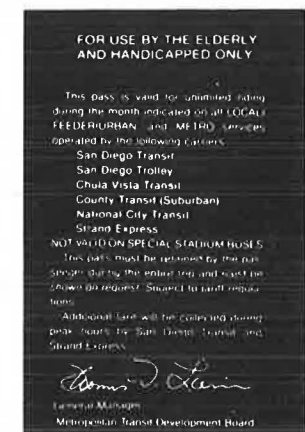 FOR USE BY THE ELDERLY
AND HANDICAPPED ONLY
This pass is valid for unlimited riding
during the month indicated on all LOCAL/
FEEDER/URBAN and METRO services
operated by the following carriers:
San Diego Transit
San Diego Trolley
Chula Vista Transit
County Transit (Suburban)
National City Transit
Strand Express
NOT VALID ON SPECIAL STADIUM BUSES
This pass must be retained by the pas-
senger during the entire trip and must be
shown on request. Subject to tariff regula-
tions.
Additional fare will be collected during
peak hours by San Diego Transit and
Strand Express.
General Manager
Metropolitan Transit Development Board